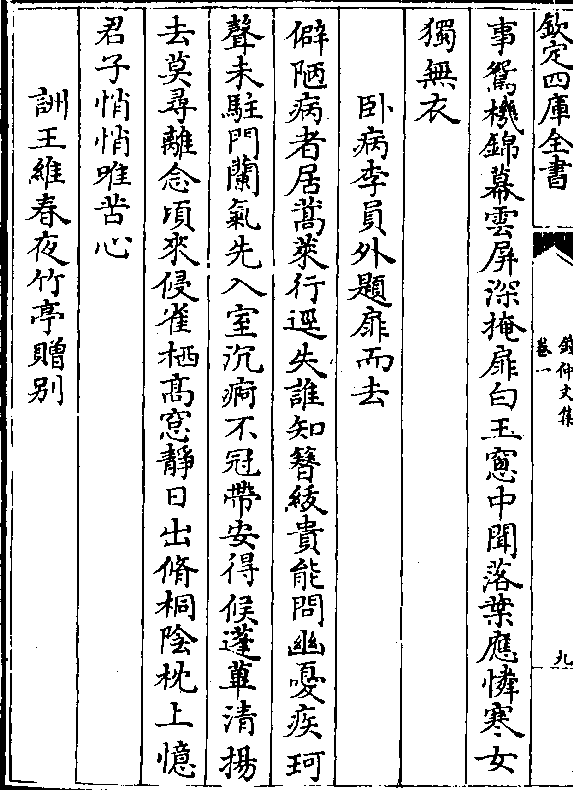 欽定四庫全書
錢仲文集
卷一
九
事鴛機錦幕雲屏深掩扉白玉窻中聞落葉應憐寒女
獨無衣
卧病李員外題扉而去
僻陋病者居蒿萊行逕失誰知簪綏貴能問幽憂疾珂
聲未駐門蘭氣先入室沉痾不冠帶安得候蓬蓽清揚
去莫尋離念頃來侵雀栖髙窓靜日出脩桐陰枕上憶
君子悄悄唯苦心
詶王維春夜竹亭贈別